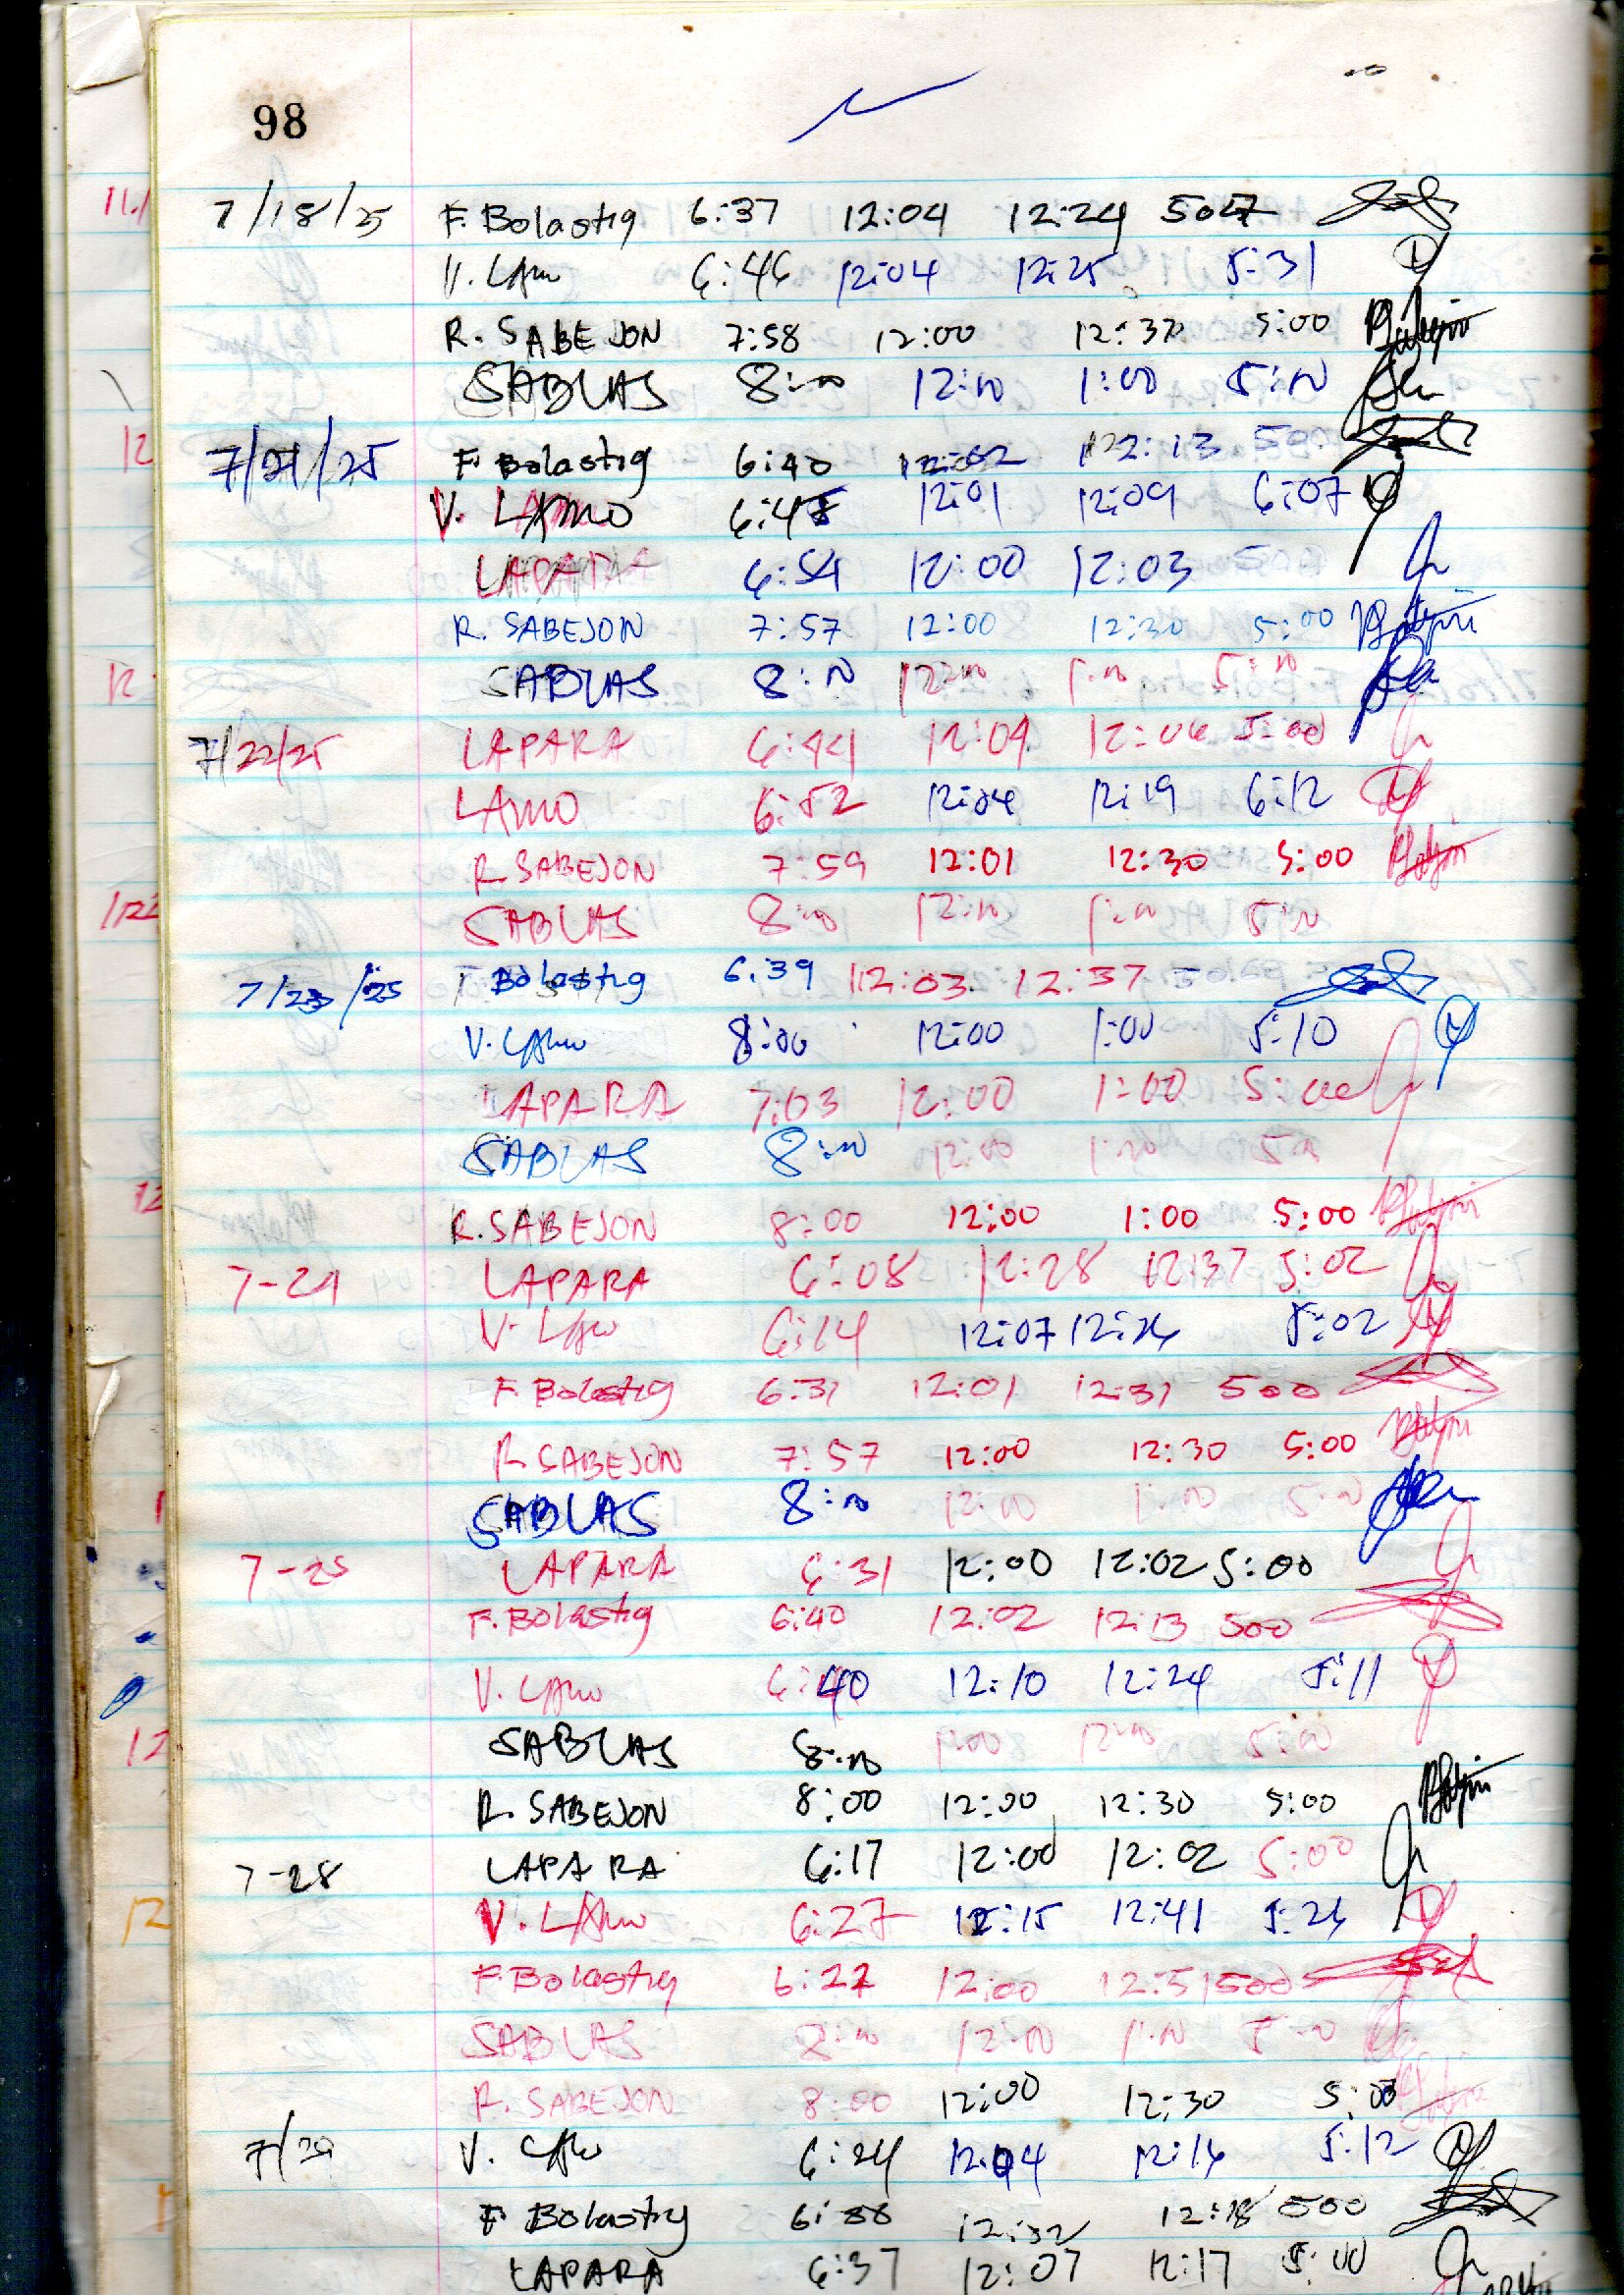 98
7/18/25 F. Bolastig 6:37 12:04 12:24 5:07
V. LAmo 6:46 12:04 12:25 5:31
R. SABEJON 7:58 12:00 12:30 5:00
SABLAS 8:00 12:00 1:00 5:00
7/21/25 F Bolastig 6:40 12:02 12:13 500
V. LAMO 6:48 12:01 12:09 6:07
LAPARA 6:54 12:00 12:03 500
R. SABEJON 7:57 12:00 12:30 5:00
SABLAS 8:00 12:00 1:00 5:00
7/22/25 LAPARA 6:44 12:04 12:06 5:00
LAMO 6:52 12:04 12:19 6:12
R. SABEJON 7:59 12:01 12:30 5:00
SABLAS 8:00 12:00 1:00 5:00
7/23/25 F Bolastig 6:39 12:03 12:37 500
V. LAmo 8:00 12:00 1:00 5:10
LAPARA 7:03 12:00 1:00 5:00
SABLAS 8:00 12:00 1:00 5:00
R. SABEJON 8:00 12:00 1:00 5:00
7-24 LAPARA 6:08 12:28 12:37 5:02
V. LAmo 6:14 12:07 12:26 5:02
F. Bolastig 6:31 12:01 12:31 500
R. SABEJON 7:57 12:00 12:30 5:00
SABLAS 8:00 12:00 1:00 5:00
7-25 LAPARA 6:31 12:00 12:02 5:00
F. Bolastig 6:40 12:02 12:13 500
V. LAmo 6:40 12:10 12:24 5:11
SABLAS 8:00 12:00 5:00
R. SABEJON 8:00 12:00 12:30 5:00
7-28 LAPARA 6:17 12:00 12:02 5:00
V. LAmo 6:27 12:15 12:41 5:26
F. Bolastig 6:27 12:00 12:51 500
SABLAS 8:00 12:00 1:00 5:00
R. SABEJON 8:00 12:00 12:30 5:00
7/29 V. LAmo 6:24 12:04 12:16 5:12
F Bolastig 12:32 12:18 500
LAPARA 6:37 12:07 12:17 5:00